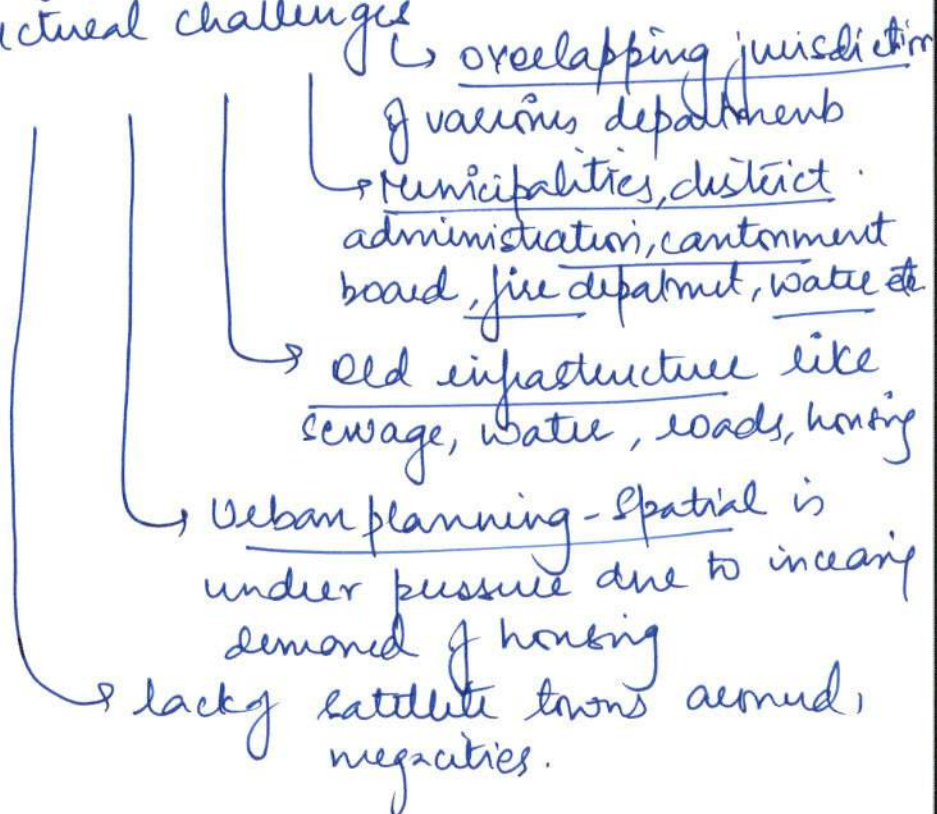 ctural challenges
↳ overlapping jurisdiction
of various departments
→ Municipalities, district
administration, cantonment
board, fire department, water etc
→ Old infrastructure like
sewage, water, roads, housing
→ Urban planning - Spatial is
under pressure due to increasing
demand of housing
→ lack of satellite towns around,
megacities.